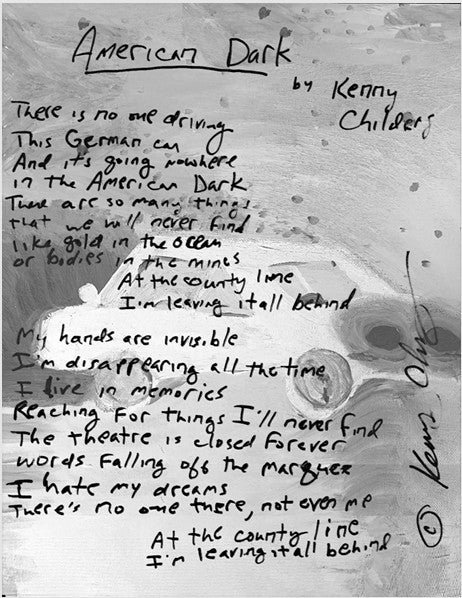 American Dark
by Kenny
Childers
There is no one driving
This German car
And it's going nowhere
in the American Dark
There are so many things
that we will never find
like gold in the ocean
or bodies in the mines
At the county line
I'm leaving it all behind
My hands are invisible
I'm disappearing all the time
I live in memories
Reaching for things I'll never find
The theatre is closed forever
words falling off the marquee
I hate my dreams
There's no one there, not even me
At the county line
I'm leaving it all behind
©